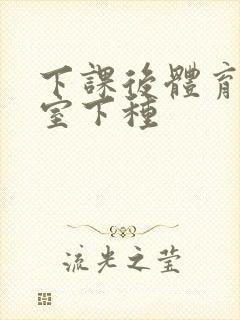 下課後體育
室下種
流光之莹